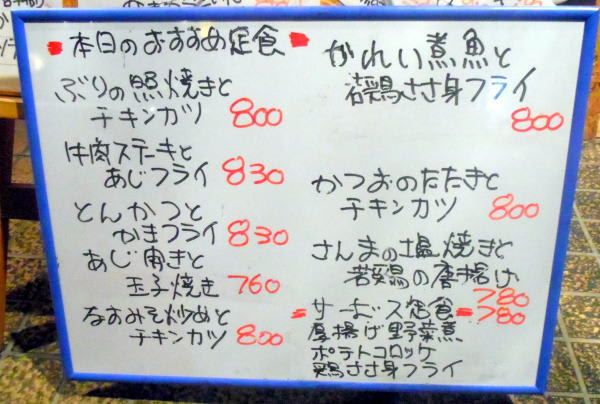 本日のおすすめ定食
ぶりの照焼きと
チキンカツ 800
牛肉ステーキと
あじフライ 830
とんかつと
かきフライ 830
あじ開きと
玉子焼き 760
なすみそ炒めと
チキンカツ 800
がれい煮魚と
若鶏ささ身フライ
800
かつおのたたきと
チキンカツ 800
さんまの塩焼きと
若鶏の唐揚げ
780
=サービス定食=780
厚揚げ野菜煮
ポテトコロッケ
鶏ささ身フライ